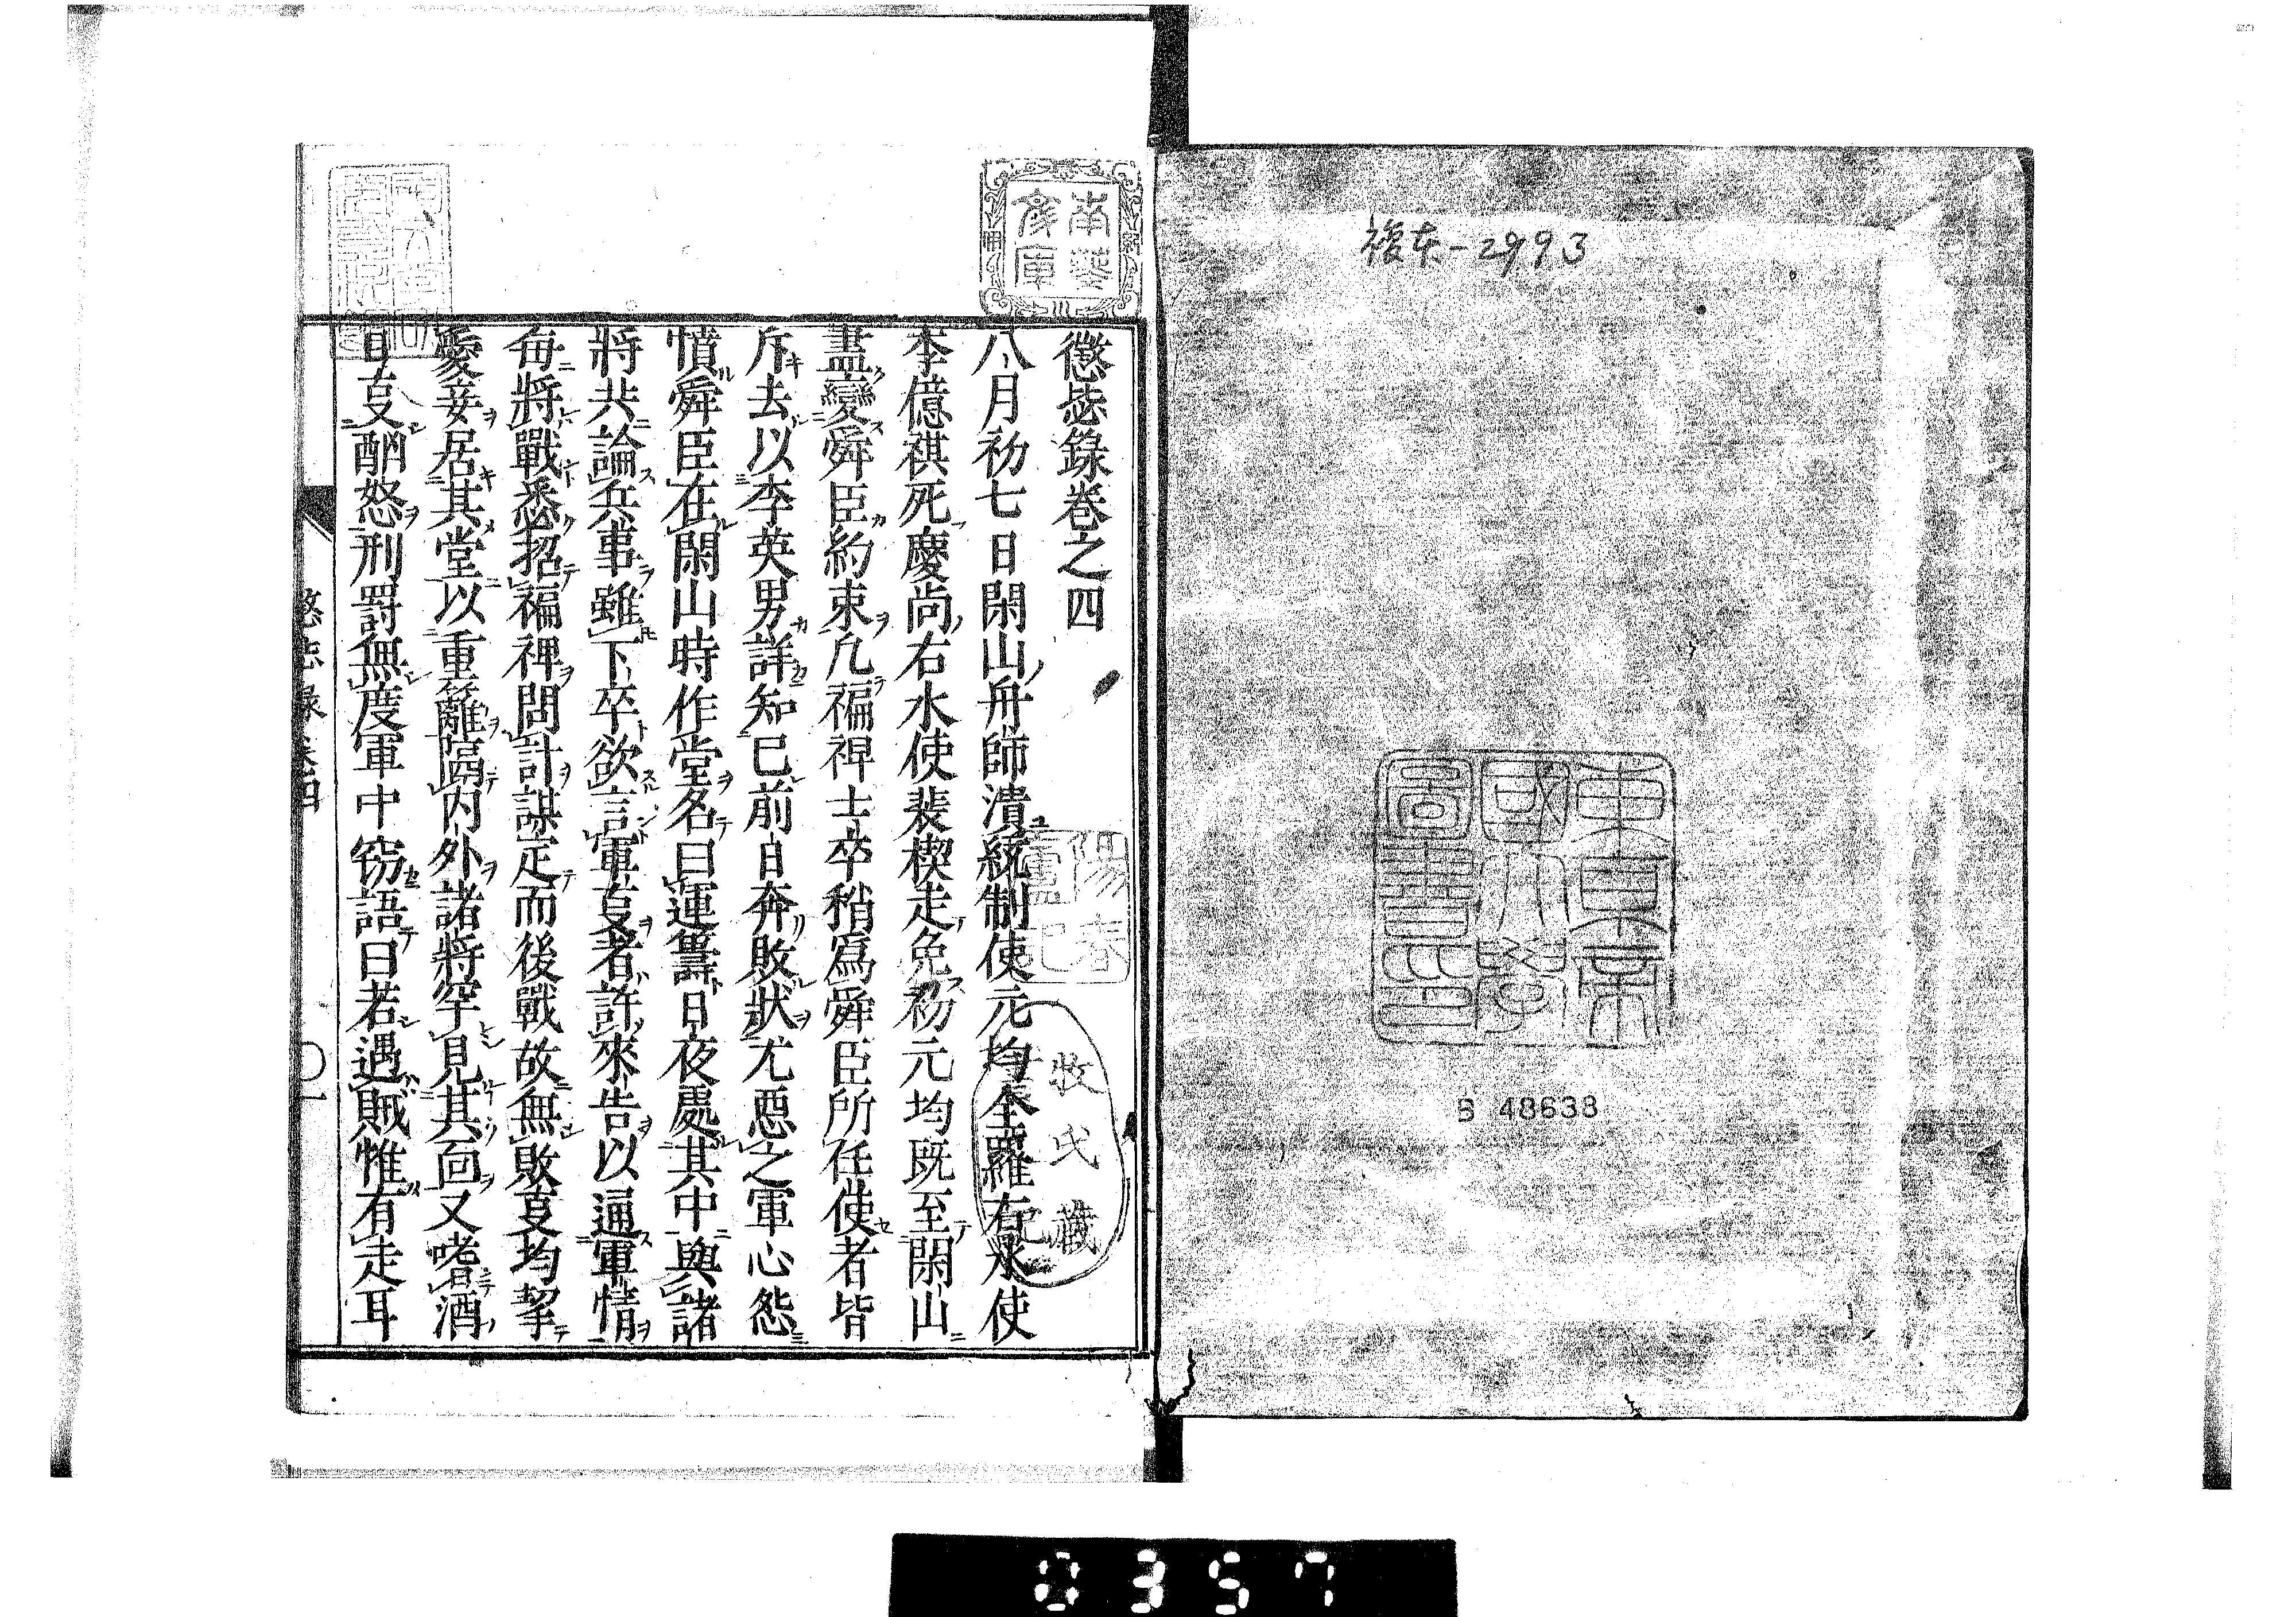 複本-2993
東京帝
國大學
圖書印
B 48638
南葵
文庫
懲毖錄卷之四
八月初七日閑山舟師潰統制使元均全羅右水使
李億祺死慶尚右水使裴楔走免初元均既至閑山
盡變舜臣約束凡褊裨士卒稍爲舜臣所任使者皆
斥去以李英男詳知已前日奔敗狀尤惡之軍心怨
憤舜臣在閑山時作堂名曰運籌日夜處其中與諸
將共論兵事雖下卒欲言軍叓者許來告以通軍情
每將戰悉招褊裨問計謀定而後戰故無敗叓均挈
愛妾居其堂以重籬隔内外諸將罕見其面又嗜酒
日叓酗怒刑罰無度軍中竊語曰若遇賊惟有走耳
陽春
廬記
牧氏藏
懲毖錄 卷四
〇一
0357